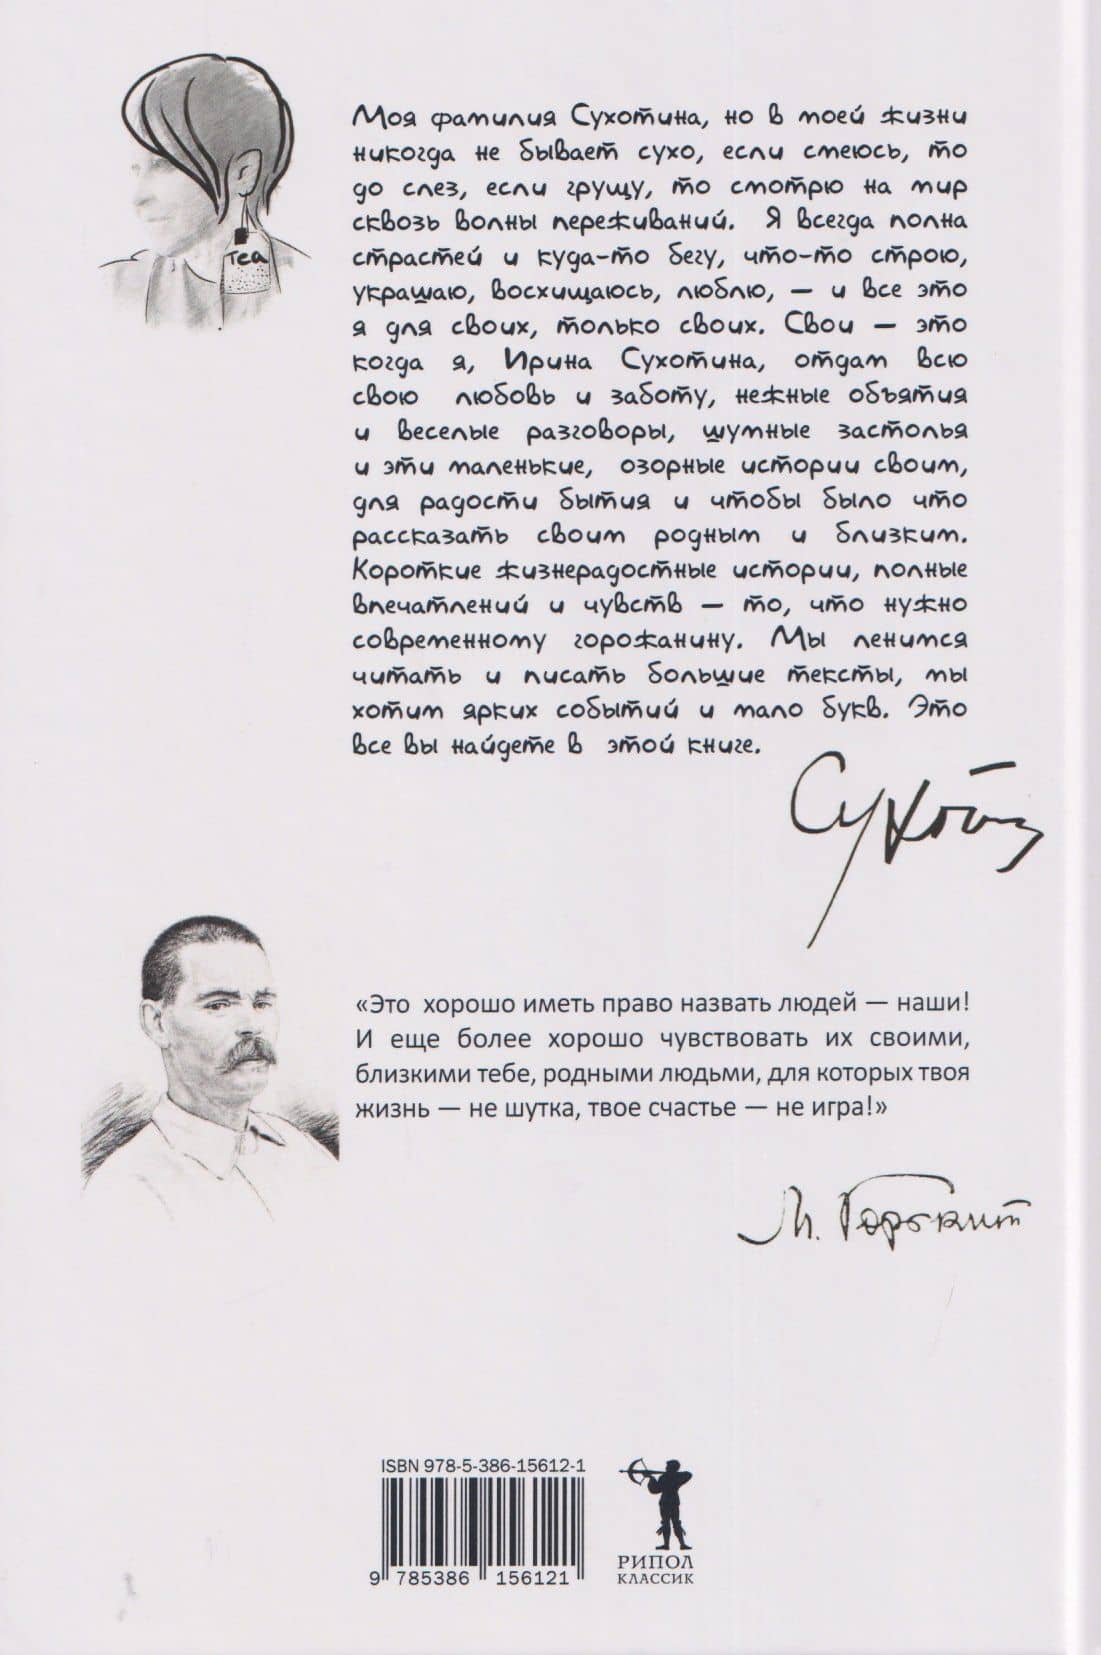 Tea
Моя фамилия Сухотина, но в моей жизни
никогда не бывает сухо, если смеюсь, то
до слез, если грущу, то смотрю на мир
сквозь волны переживаний. Я всегда полна
страстей и куда-то бегу, что-то строю,
украшаю, восхищаюсь, люблю, — и все это
я для своих, только своих. Свои — это
когда я, Ирина Сухотина, отдам всю
свою любовь и заботу, нежные объятия
и веселые разговоры, шумные застолья
и эти маленькие, озорные истории своим,
для радости бытия и чтобы было что
рассказать своим родным и близким.
Короткие жизнерадостные истории, полные
впечатлений и чувств — то, что нужно
современному горожанину. Мы ленимся
читать и писать большие тексты, мы
хотим ярких событий и мало букв. Это
все вы найдете в этой книге.
«Это хорошо иметь право назвать людей — наши!
И еще более хорошо чувствовать их своими,
близкими тебе, родными людьми, для которых твоя
жизнь — не шутка, твое счастье — не игра!»
М. Горький
ISBN 978-5-386-15612-1
9 785386 156121
РИПОЛ
КЛАССИК